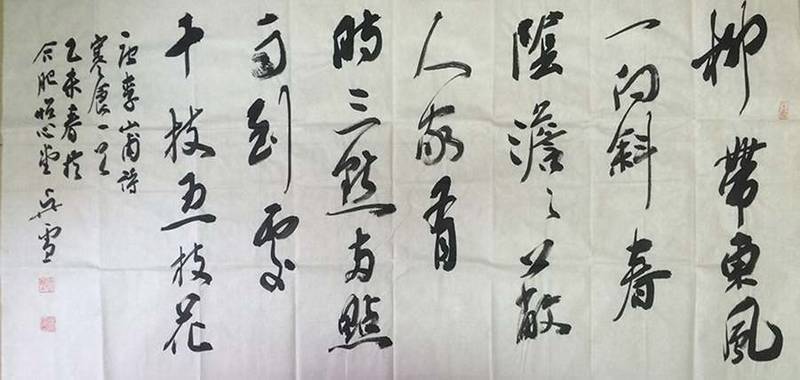 柳帶東風
一向斜春
陰澹々蔽
人家有
時三點兩點
雨到處
十枝五枝花
唐李山甫詩
寒食一首
乙未春於
合肥心堂 吳雪